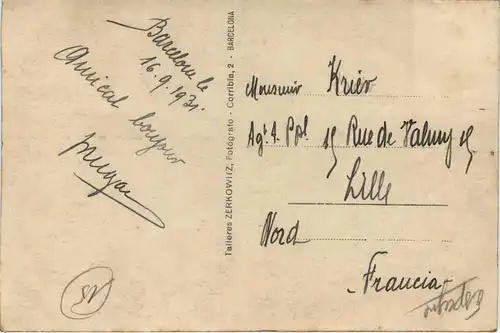 Barcelone le
16.9.1931.
Amical bonjour
Talleres ZERKOWITZ, Fotógrafo - Corribia, 2 - BARCELONA
Monsieur Kriév
Agt. 15 Rue de Valmy 15
Lille
Nord
Francia
15